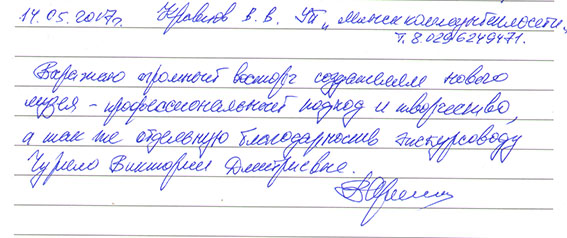 14.05.2017г. Кравцов В. В. УП „Минсккоммунтеплосеть"
т. 8.0296249471.
Выражаю огромный восторг создателям нового
музея - профессиональный подход и творчество,
а так же отдельную благодарность экскурсоводу
Чурило Виктории Дмитриевне.